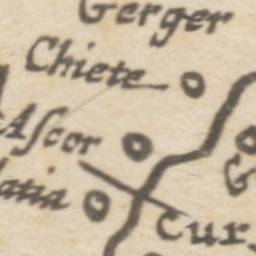 Gerger
Chiete
Aſcor
latia
G
Cur